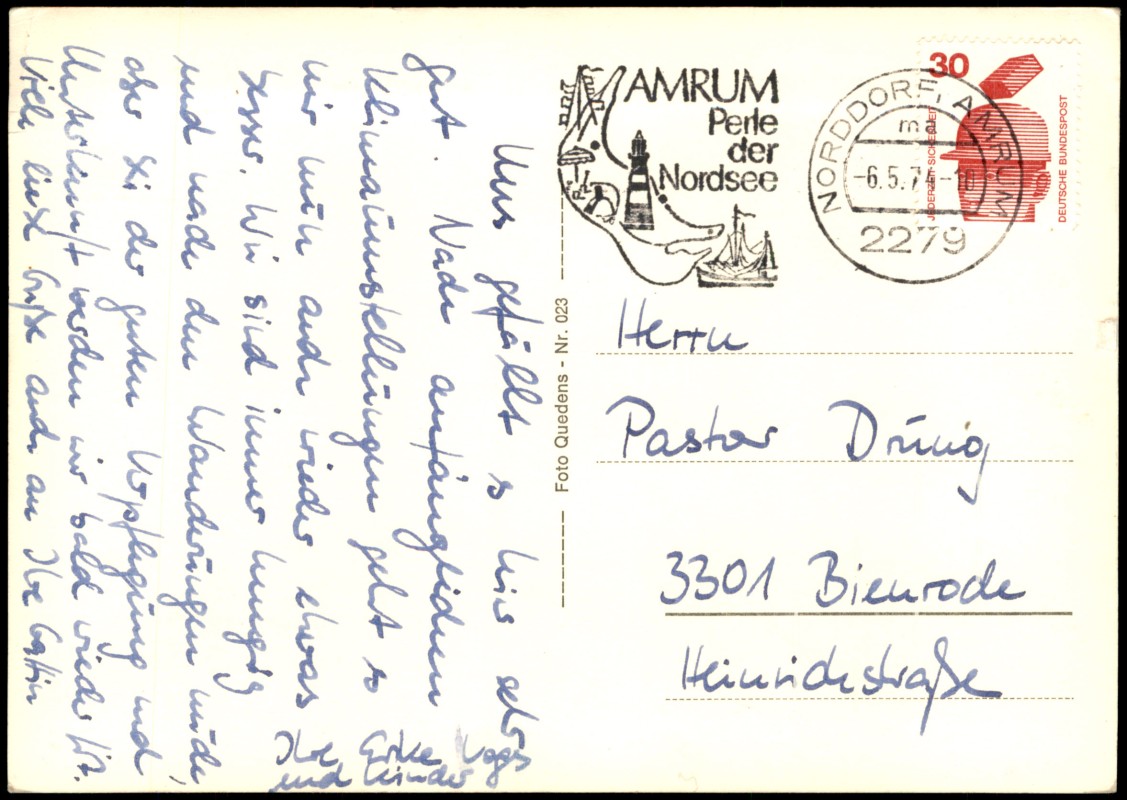 Uns gefällt es hier sehr
gut. Nach anfänglichen
Klimaumstellungen geht es
mir nun auch wieder etwas
besser. Wir sind immer hungrig
und nach den Wanderungen müde,
aber bei der guten Verpflegung und
Unterkunft werden wir bald wieder fit.
Viele liebe Grüße auch an Ihre Gattin
Ihre Erika Voges
und Kinder
Foto Quedens - Nr. 023
AMRUM
Perle
der
Nordsee
NORDDORF, AMRUM
ma
-6.5.74-18
2279
30
JEDERZEIT SICHERHEIT
DEUTSCHE BUNDESPOST
Herrn
Pastor Drung
3301 Bienrode
Heinrichstraße